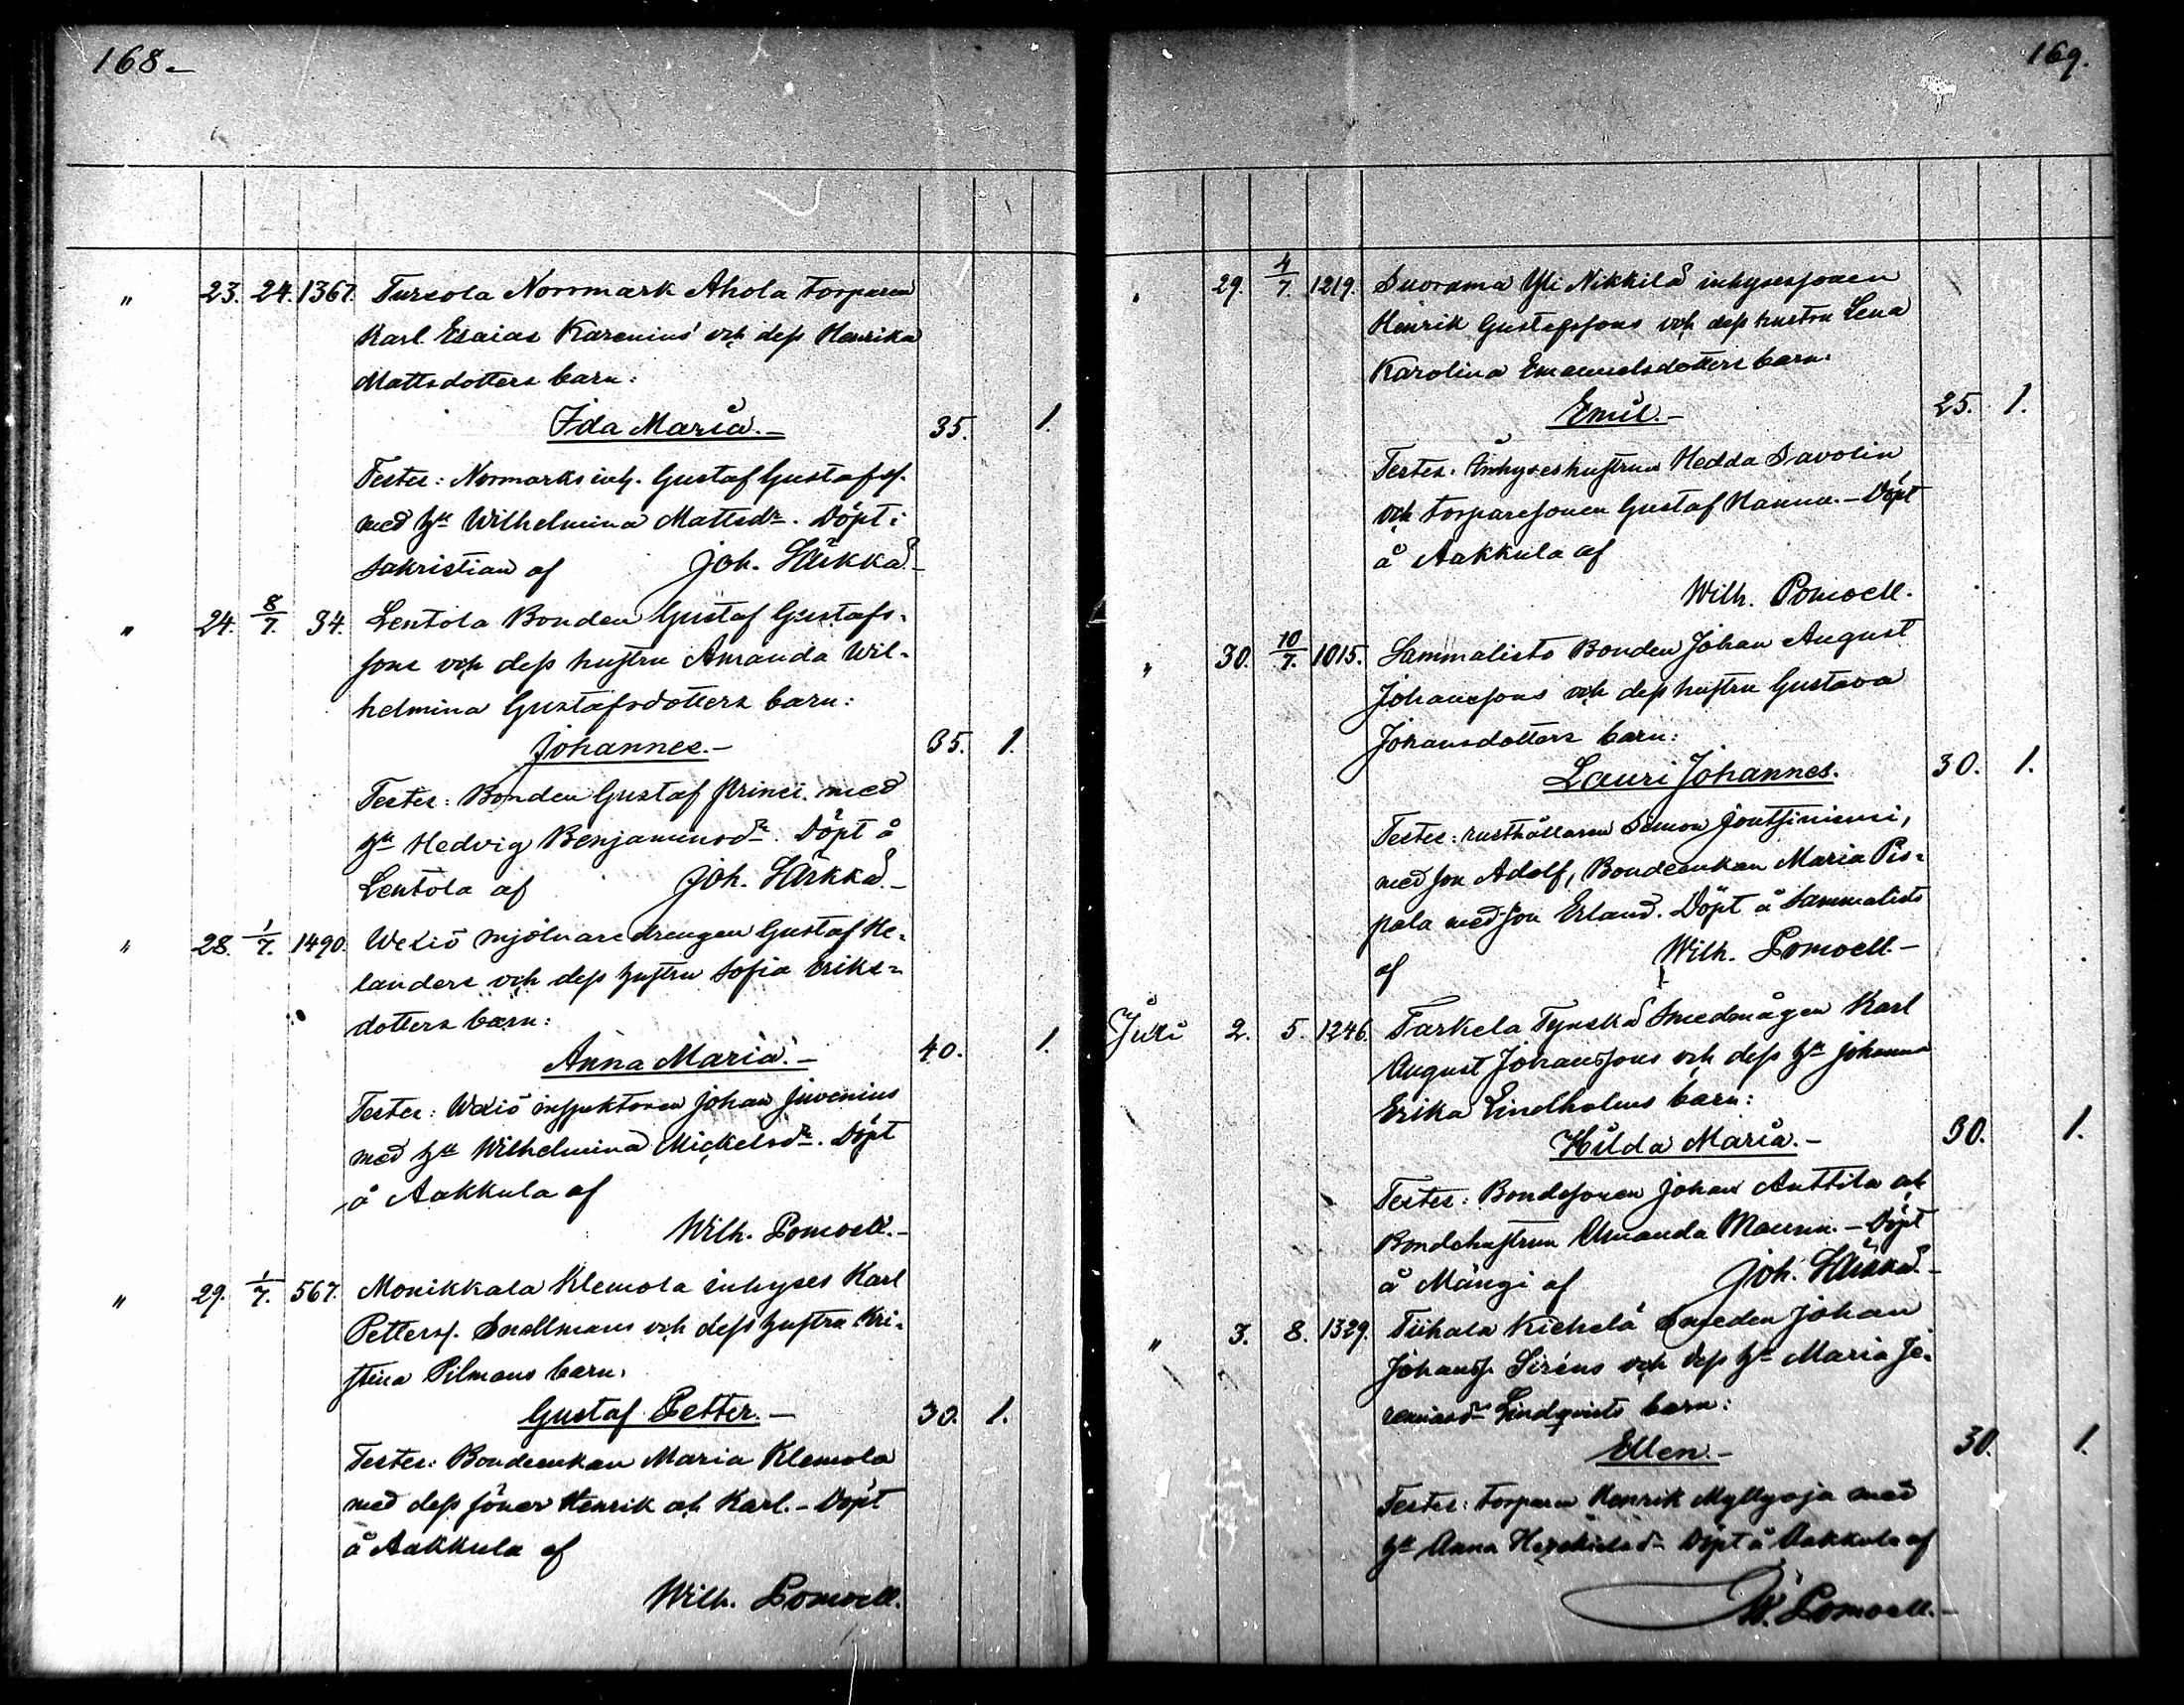 168.-
" 23. 24. 1367. Tursola Norrmark Ahola torparen
Karl Esaias Karenius och dess Henrika
Mattsdotters barn:
Ida Maria.- 35. 1.
Testes: Normarks inh. Gustaf Gustafss.
med hu Wilhelmina Mattsdr. Döpt i
sakristian af Joh. Särkkä.-
" 24. 8/7. 34. Lentola Bonden Gustaf Gustafs-
sons och dess hustru Amanda Wil-
helmina Gustafsdotters barn:
Johannes.- 35. 1.
Testes: Bonden Gustaf Prinsi med
hu Hedvig Benjaminsdr. Döpt å
Lentola af Joh. Särkkä.-
" 28. 1/7. 1490. Wexiö mjölnaredrengen Gustaf He-
landers och dess hustru Sofia Eriks-
dotters barn:
Anna Maria.- 40. 1.
Testes: Wexiö inspektoren Johan Juvenius
med hu Wilhelmina Mickelsdr. Döpt
å Aakkula af
Wilh. Pomoell.-
" 29. 1/7. 567. Monikkala Klemola inhyses Karl
Petterss. Snellmans och dess hustru Kri-
stina Pilmans barn:
Gustaf Petter.- 30. 1.
Testes: Bondeenkan Maria Klemola
med dess söner Henrik och Karl.- Döpt
å Aakkula af
Wilh. Pomoell.
169.
" 29. 4/7. 1219. Suorama Yli Nikkilä inhysessonen
Henrik Gustafssons och dess hustru Lena
Karolina Emanuelsdotters barn:
Emil.- 25. 1.
Testes: Inhyseshustrun Hedda Savolin
och torparesonen Gustaf Hannu.- Döpt
å Aakkula af
Wilh. Pomoell.
" 30. 10/7. 1015. Sammalisto Bonden Johan August
Johanssons och dess hustru Gustava
Johansdotters barn:
Lauri Johannes. 30. 1.
Testes: rusthållaren Simon
med son Adolf, Bondeenkan Maria Pis-
pala med son Erland. Döpt å Sammalisto
af Wilh. Pomoell.-
Juli 2. 5. 1246. Tarkela Tynskä Smedmågen Karl
August Johanssons och dess hu Johanna
Erika Lindholms barn:
Hilda Maria.- 30. 1.
Testes: Bondesonen Johan Anttila och
Bondehustrun Amanda Maunu.- Döpt
å Mängi af Joh. Särkkä.-
" 3. 8. 1329. Tiihala Kiehelä Smeden Johan
Johanss. Siréns och dess hu Maria Je-
remiasdr Lindqvists barn:
Ellen.- 30. 1.
Testes: Torparen Henrik Myllyoja med
hu Anna Heskielsdr Döpt å Aakkula af
W. Pomoell.-